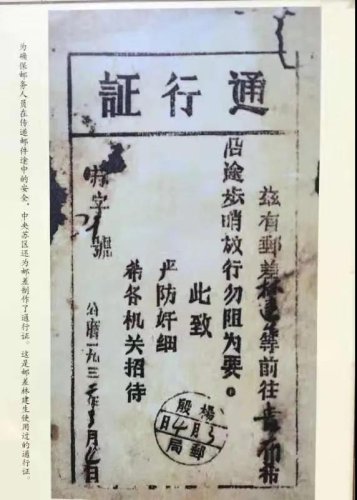 通行証
茲有郵差林建等前往
沿途步哨放行勿阻为要。
此致
严防奸细
希各机关招待
特字 號
公曆一九三 年 月 日
楊殷
郵局
为确保邮务人员在传递邮件途中的安全，中央苏区还为邮差制作了通行证。这是邮差林建生使用过的通行证。